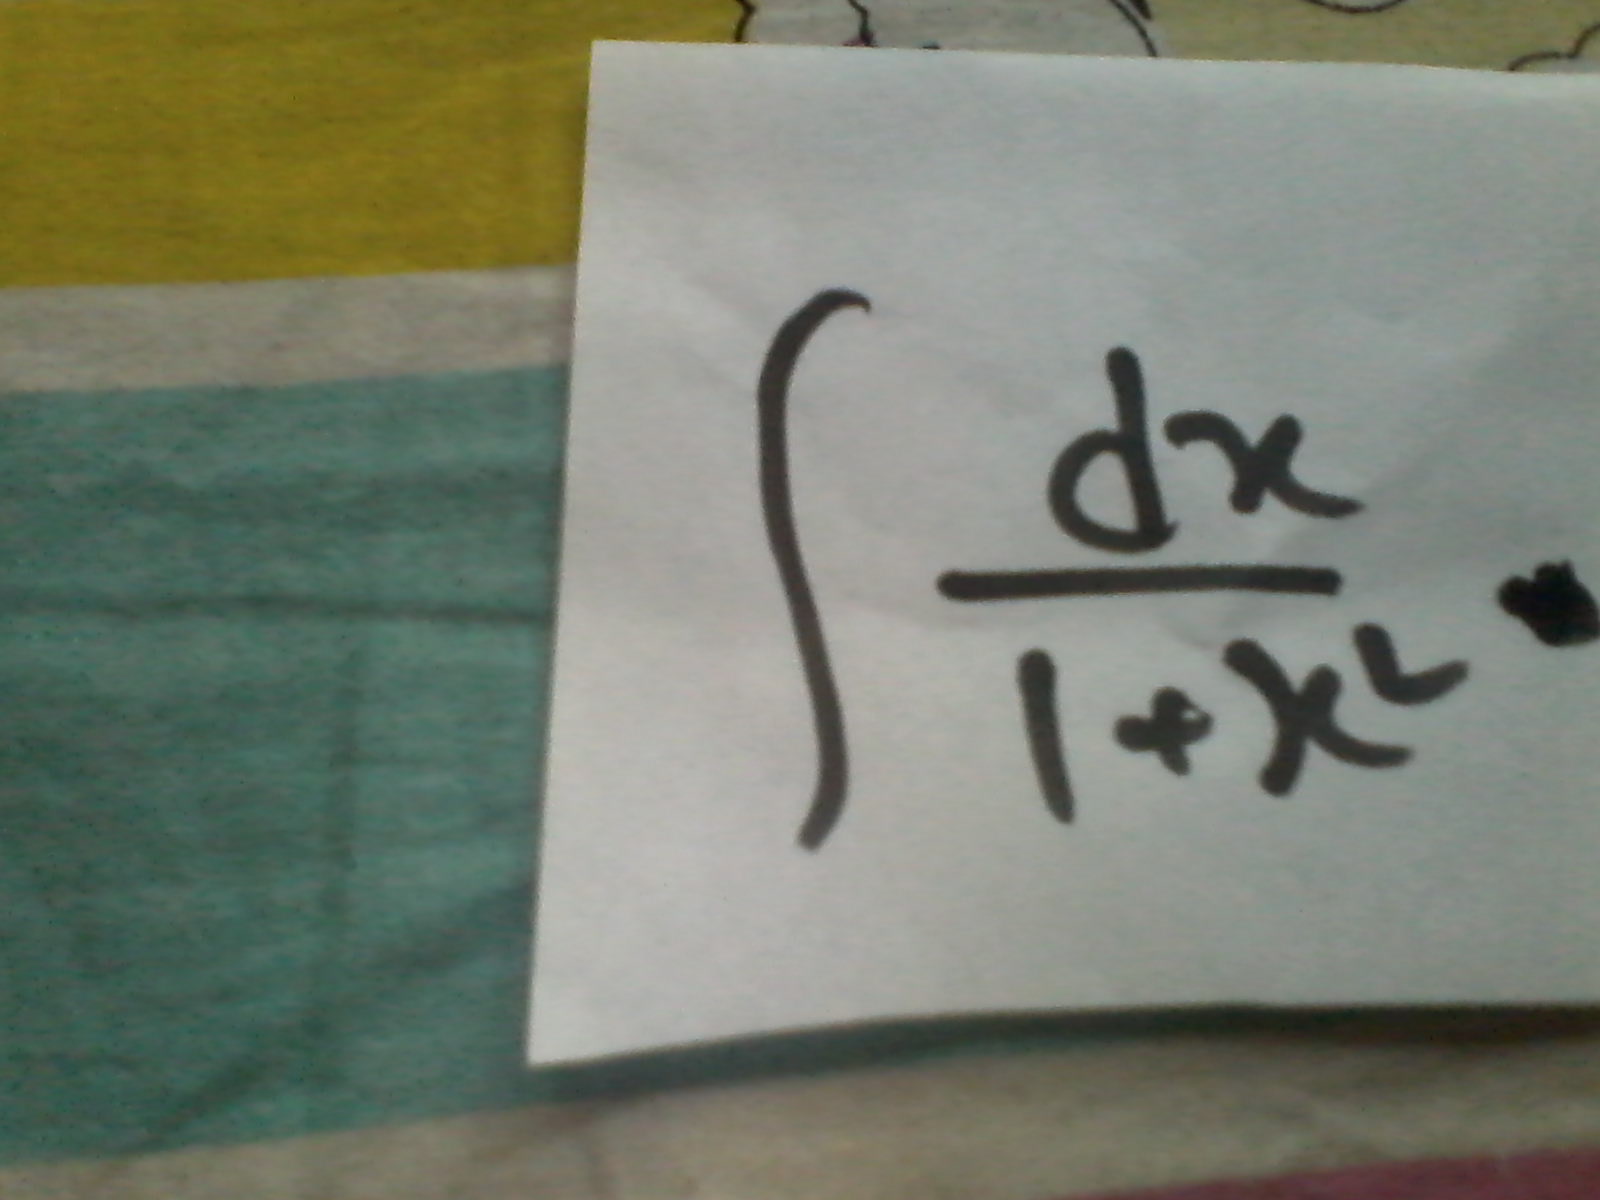 ∫ dx
1+x²